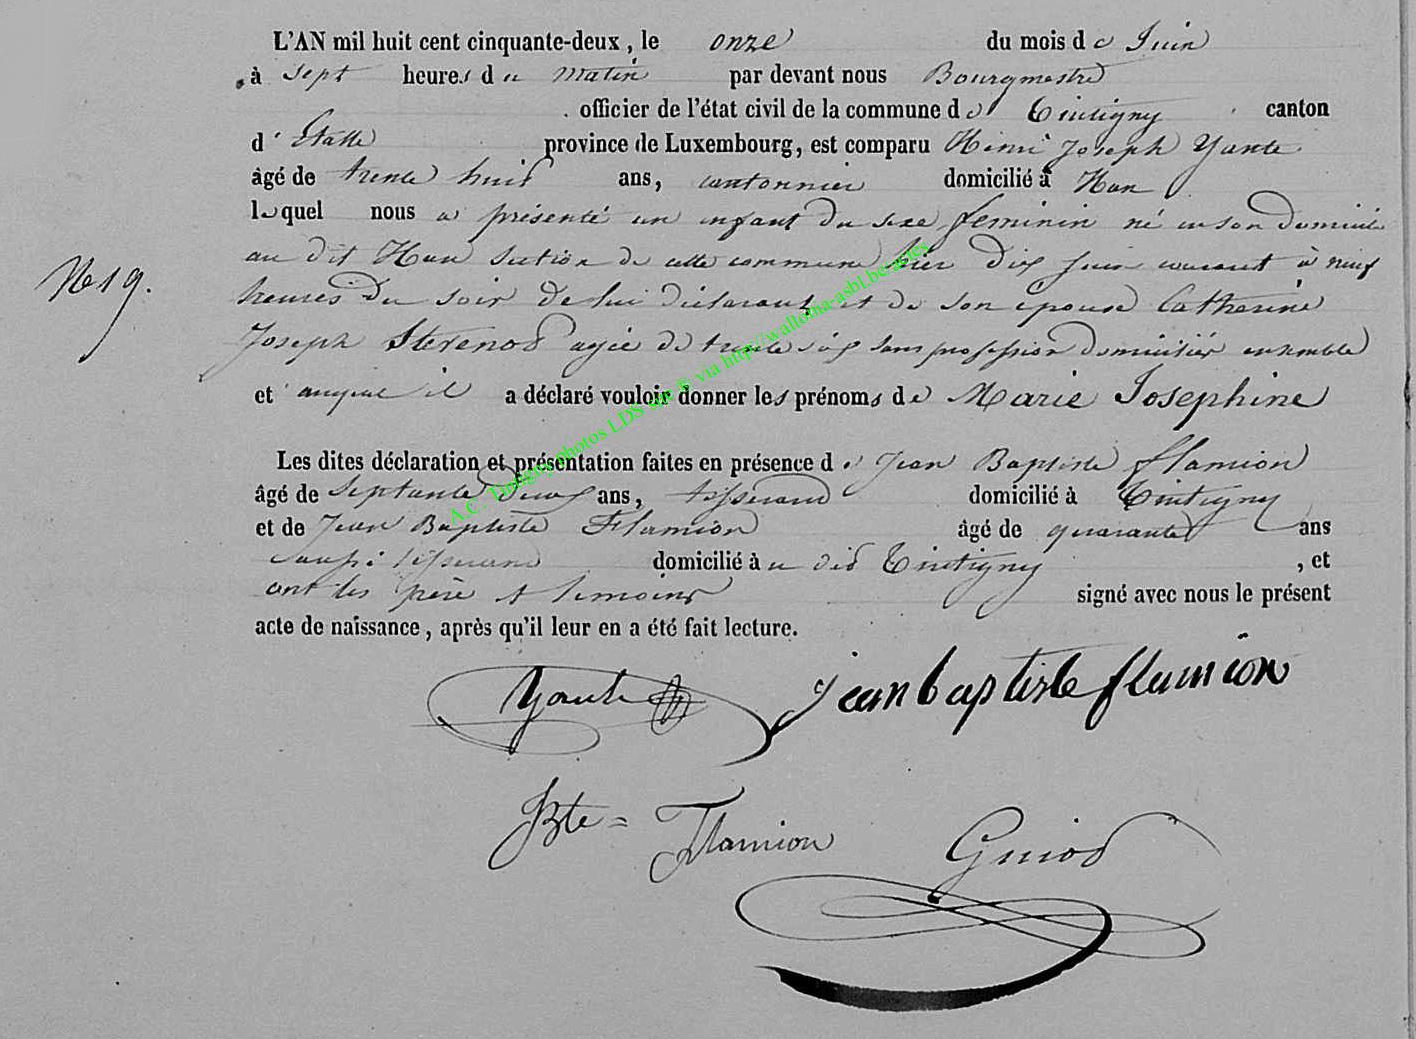 L'AN mil huit cent cinquante-deux, le onze du mois de Juin
à sept heures du matin par devant nous Bourgmestre
officier de l'état civil de la commune de Tintigny canton
d'Etalle province de Luxembourg, est comparu Henri Joseph Yante
âgé de trente huit ans, cantonnier domicilié à Han
lequel nous a présenté un enfant du sexe feminin né en son domicile
au dit Han section de cette commune hier dix juin courant à neuf
N° 19.
heures du soir de lui déclarant et de son épouse Catherine
Joseph Stevenot agée de trente six sans profession domiciliés ensemble
et auquel il a déclaré vouloir donner les prénoms de Marie Josephine
Les dites déclaration et présentation faites en présence de Jean Baptiste Flamion
âgé de septante deux ans, tisserand domicilié à Tintigny
et de Jean Baptiste Flamion âgé de quarante ans
aussi tisserand domicilié à u dit Tintigny, et
ont les père et temoins signé avec nous le présent
acte de naissance, après qu'il leur en a été fait lecture.
Yante jean baptiste flamion
JBte = Flamion Guiot
A.C. Tintigny photos LDS via http://wallonia-asbl.be/actes